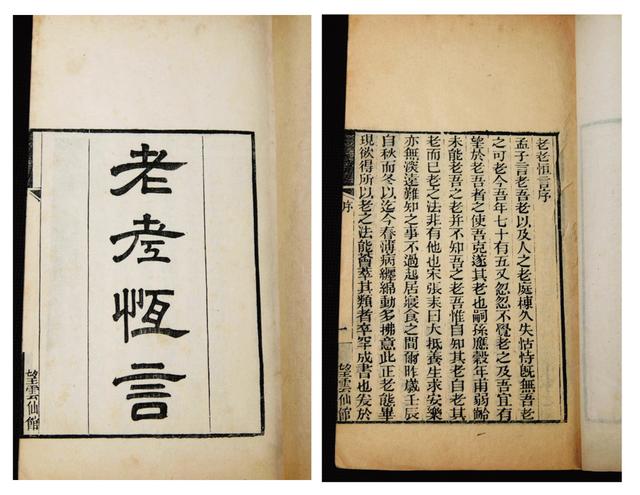 老老恆言
望雲仙館
老老恒言序
孟子言老吾老以及人之老庭棟久失怙恃既無吾老
之可老今吾年七十有五又忽忽不覺老之及吾宜有
望於老吾老者之使吾克遂其老也嗣孫應穀年甫弱齡
未能老吾之老并不知吾之老吾惟自知其老自老其
老而已老之法非有他也宋張耒曰大抵養生求安樂
亦無深遠難知之事不過起居寢食之間爾昨歲壬辰
自秋而冬以迄今春薄病纏綿動多拂意此正老態畢
現欲得所以老之法能薈萃其類者卒罕成書也爰於
序
一